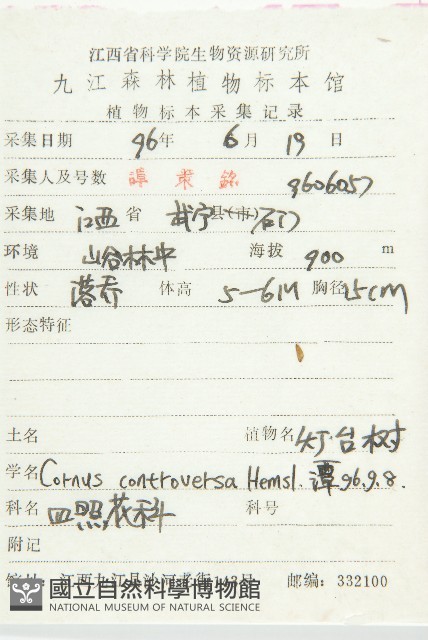 江西省科学院生物资源研究所
九江森林植物标本馆
植物标本采集记录
采集日期 96年 6月 19日
采集人及号数 譚策銘 9606057
采集地 江西省 武宁县(市) 石门
环境 山谷林中 海拔 900 m
性状 落乔 体高 5-6M 胸径 15cm
形态特征
土名 植物名 灯台树
学名 Cornus controversa Hemsl. 潭 96.9.8.
科名 四照花科 科号
附记
馆址: 江西九江县沙河 街 邮编: 332100
國立自然科學博物館
NATIONAL MUSEUM OF NATURAL SCIENCE